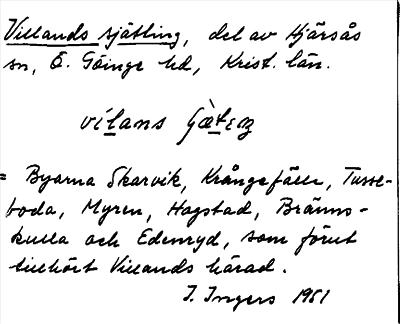 Villands sjätting, del av Hjärsås
sn, Ö. Göinge hd, Krist. län.
vílans
= Byarna Skarvik, Krångefälle, Tusse-
boda, Myren, Hagstad, Bränns-
kulla och Edenryd, som förut
tillhört Villands härad.
I. Ingers 1951